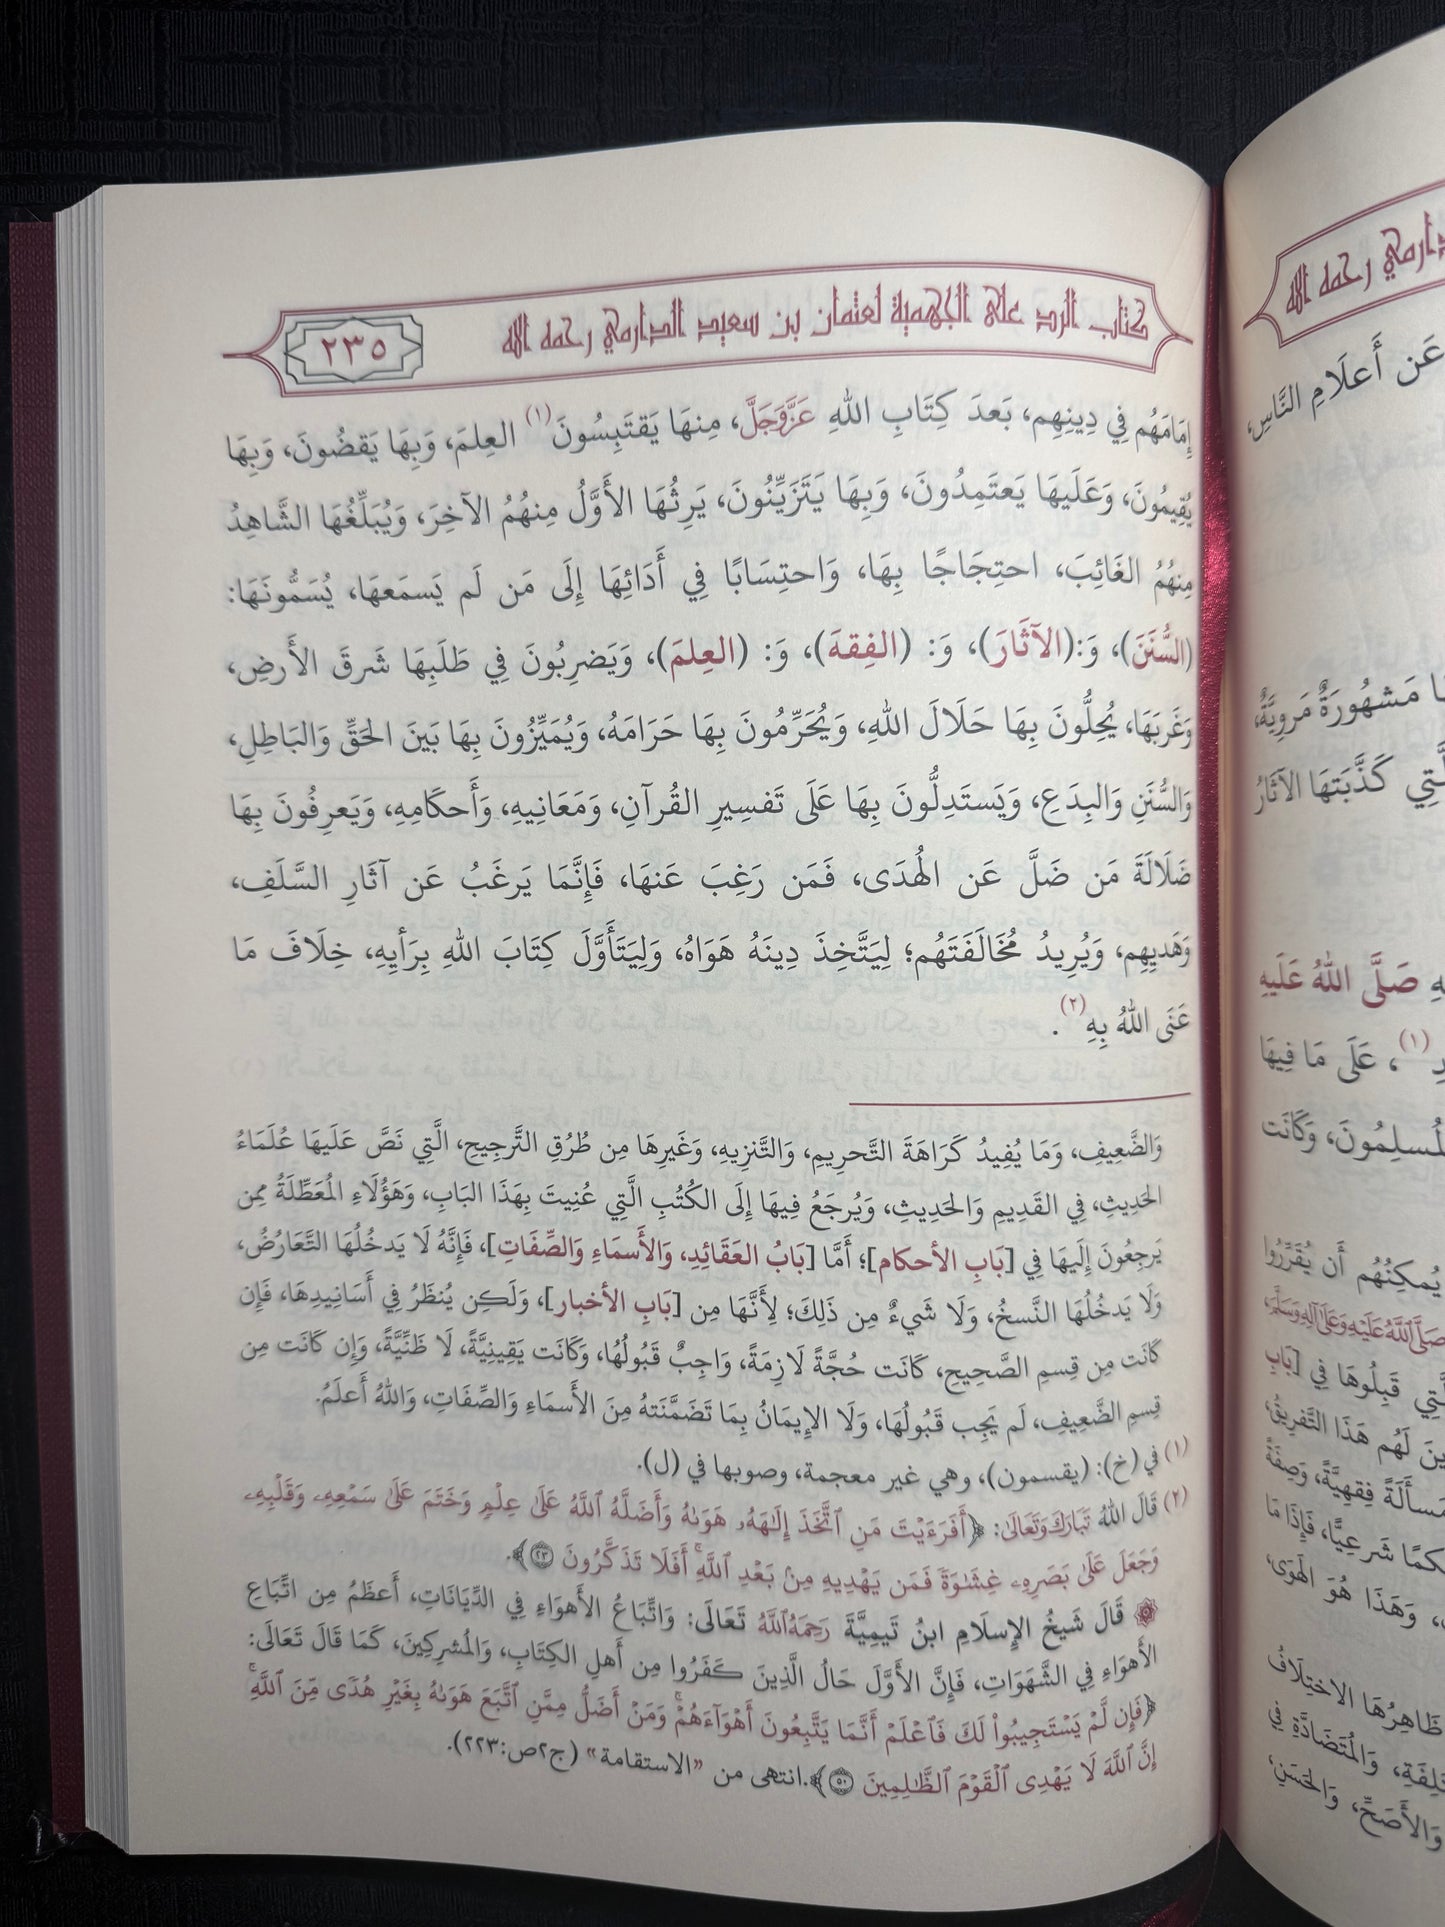 كتاب الرد على الجهمية لعثمان بن سعيد الدارمي رحمه الله
٢٣٥
إِمَامَهُم فِي دِينِهِم، بَعدَ كِتَابِ اللهِ عَزَّوَجَلَّ، مِنهَا يَقتَبِسُونَ(١) العِلمَ، وَبِهَا يَقضُونَ، وَبِهَا
يُقِيمُونَ، وَعَلَيهَا يَعتَمِدُونَ، وَبِهَا يَتَزَيِّنُونَ، يَرِثُهَا الأَوَّلُ مِنهُمُ الآخِرَ، وَيُبَلِّغُهَا الشَّاهِدُ
مِنهُمُ الغَائِبَ، احتِجَاجًا بِهَا، وَاحتِسَابًا فِي أَدَائِهَا إِلَى مَن لَم يَسمَعهَا، يُسَمُّونَهَا:
(السُّنَنَ)، وَ:(الآثَارَ)، وَ: (الفِقهَ)، وَ: (العِلمَ)، وَيَضرِبُونَ فِي طَلَبِهَا شَرقَ الأَرضِ،
وَغَربَهَا، يُحِلُّونَ بِهَا حَلَالَ اللهِ، وَيُحَرِّمُونَ بِهَا حَرَامَهُ، وَيُمَيِّزُونَ بِهَا بَينَ الحَقِّ وَالبَاطِلِ،
وَالسُّنَنِ وَالبِدَعِ، وَيَستَدِلُّونَ بِهَا عَلَى تَفسِيرِ القُرآنِ، وَمَعَانِيهِ، وَأَحكَامِهِ، وَيَعرِفُونَ بِهَا
ضَلَالَةَ مَن ضَلَّ عَن الهُدَى، فَمَن رَغِبَ عَنهَا، فَإِنَّمَا يَرغَبُ عَن آثَارِ السَّلَفِ،
وَهَديِهِم، وَيُرِيدُ مُخَالَفَتَهُم؛ لِيَتَّخِذَ دِينَهُ هَوَاهُ، وَلِيَتَأَوَّلَ كِتَابَ اللهِ بِرَأيِهِ، خِلَافَ مَا
عَنَى اللهُ بِهِ(٢).
وَالضَّعِيفِ، وَمَا يُفِيدُ كَرَاهَةَ التَّحرِيمِ، وَالتَّنزِيهِ، وَغَيرِهَا مِن طُرُقِ التَّرجِيحِ، الَّتِي نَصَّ عَلَيهَا عُلَمَاءُ
الحَدِيثِ، فِي القَدِيمِ وَالحَدِيثِ، وَيُرجَعُ فِيهَا إِلَى الكُتُبِ الَّتِي عُنِيتَ بِهَذَا البَابِ، وَهَؤُلَاءِ المُعَطِّلَةُ مِمن
يَرجِعُونَ إِلَيهَا فِي [بَابِ الأَحكام]؛ أَمَّا [بَابُ العَقَائِدِ، وَالأَسمَاءِ وَالصِّفَاتِ]، فَإِنَّهُ لَا يَدخُلُهَا التَّعَارُضُ،
وَلَا يَدخُلُهَا النَّسخُ، وَلَا شَيءٌ مِن ذَلِكَ؛ لِأَنَّهَا مِن [بَابِ الأَخبار]، وَلَكِن يُنظَرُ فِي أَسَانِيدِهَا، فَإِن
كَانَت مِن قِسمِ الصَّحِيحِ، كَانَت حُجَّةً لَازِمَةً، وَاجِبٌ قَبُولُهَا، وَكَانَت يَقِينِيَّةً، لَا ظَنِّيَّةً، وَإِن كَانَت مِن
قِسمِ الضَّعِيفِ، لَم يَجِب قَبُولُهَا، وَلَا الإِيمَانُ بِمَا تَضَمَّنَتهُ مِنَ الأَسمَاءِ وَالصِّفَاتِ، وَاللهُ أَعلَمُ.
(١) في (خ): (يقسمون)، وهي غير معجمة، وصوبها في (ل).
(٢) قَالَ اللهُ تَبَارَكَ وَتَعَالَى: ﴿أَفَرَءَيْتَ مَنِ ٱتَّخَذَ إِلَٰهَهُۥ هَوَىٰهُ وَأَضَلَّهُ ٱللَّهُ عَلَىٰ عِلْمٍ وَخَتَمَ عَلَىٰ سَمْعِهِۦ وَقَلْبِهِۦ
وَجَعَلَ عَلَىٰ بَصَرِهِۦ غِشَٰوَةً فَمَن يَهْدِيهِ مِنۢ بَعْدِ ٱللَّهِۚ أَفَلَا تَذَكَّرُونَ ٢٣﴾.
قَالَ شَيخُ الإِسلَامِ ابنُ تَيمِيَّةَ رَحِمَهُ ٱللَّهُ تَعَالَى: وَاتِّبَاعُ الأَهوَاءِ فِي الدِّيَانَاتِ، أَعظَمُ مِن اتِّبَاعِ
الأَهوَاءِ فِي الشَّهَوَاتِ، فَإِنَّ الأَوَّلَ حَالُ الَّذِينَ كَفَرُوا مِن أَهلِ الكِتَابِ، وَالمُشرِكِينَ، كَمَا قَالَ تَعَالَى:
﴿فَإِن لَّمْ يَسْتَجِيبُوا۟ لَكَ فَٱعْلَمْ أَنَّمَا يَتَّبِعُونَ أَهْوَآءَهُمْۚ وَمَنْ أَضَلُّ مِمَّنِ ٱتَّبَعَ هَوَىٰهُ بِغَيْرِ هُدًى مِّنَ ٱللَّهِۚ
إِنَّ ٱللَّهَ لَا يَهْدِى ٱلْقَوْمَ ٱلظَّٰلِمِينَ ٥٠﴾.انتهى من "الاستقامة" (ج٢ص:٢٢٣).
دارمي رحمه الله
عَن أَعلَامِ النَّاسِ،
مَشهُورَةٌ مَروِيَّةٌ،
كَذَّبَتهَا الآثَارُ
صَلَّى اللهُ عَلَيهِ
(١)، عَلَى مَا فِيهَا
المُسلِمُونَ، وَكَانَت
يُمكِنُهُم أَن يُقَرِّرُوا
صَلَّى ٱللَّهُ عَلَيْهِ وَعَلَىٰ آلِهِ وَسَلَّمَ،
قَبِلُوهَا فِي [بَابِ
لَهُم هَذَا التَّفرِيقُ،
مَسأَلَةً فِقهِيَّةً، وَصِفَةً
شَرعِيًّا، فَإِذَا مَا
وَهَذَا هُوَ الهَوَى
ظَاهِرُهَا الاختِلَافُ
وَالمُتَضَادَّةِ، فِي
وَالأَصَحِّ، وَالحَسَنِ،